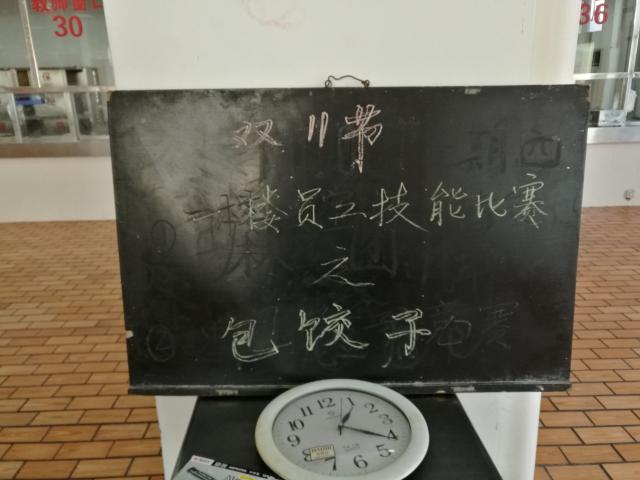 教师窗口
30
36
双11节
一楼员工技能比赛
之
包饺子
12
1
2
3
4
5
6
7
8
9
10
11